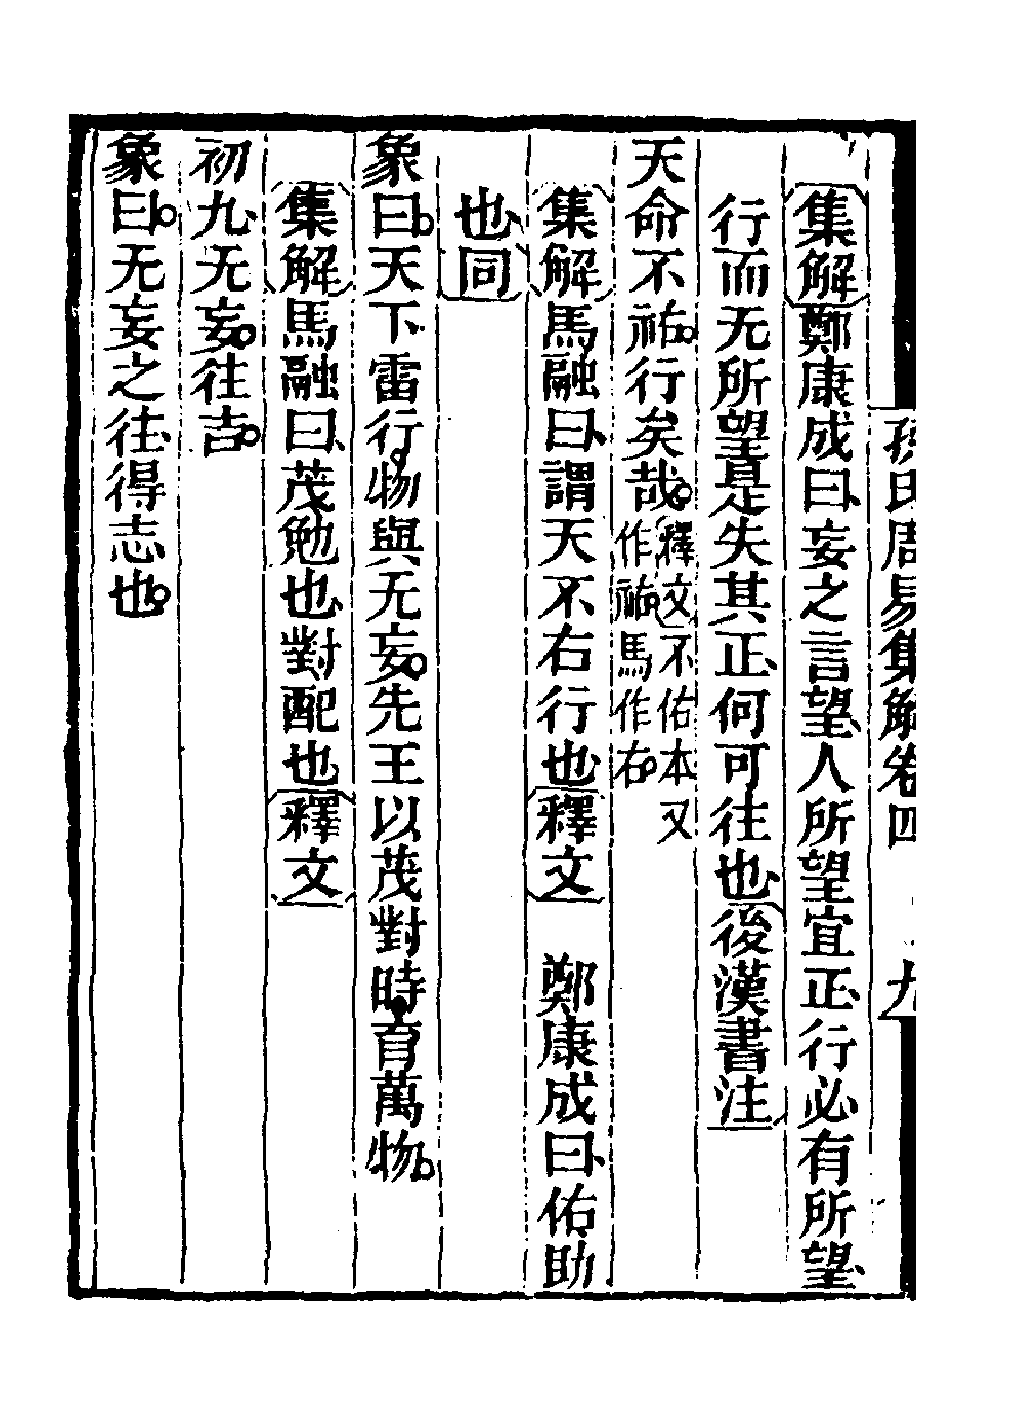 孫氏周易集解卷四 九
集解鄭康成曰妄之言望人所望宜正行必有所望
行而无所望是失其正何可往也後漢書注
天命不祐行矣哉釋文不佑本又
作祐馬作右
集解馬融曰謂天不右行也釋文 鄭康成曰佑助
也同
象曰天下雷行物與无妄先王以茂對時育萬物
集解馬融曰茂勉也對配也釋文
初九无妄往吉
象曰无妄之往得志也